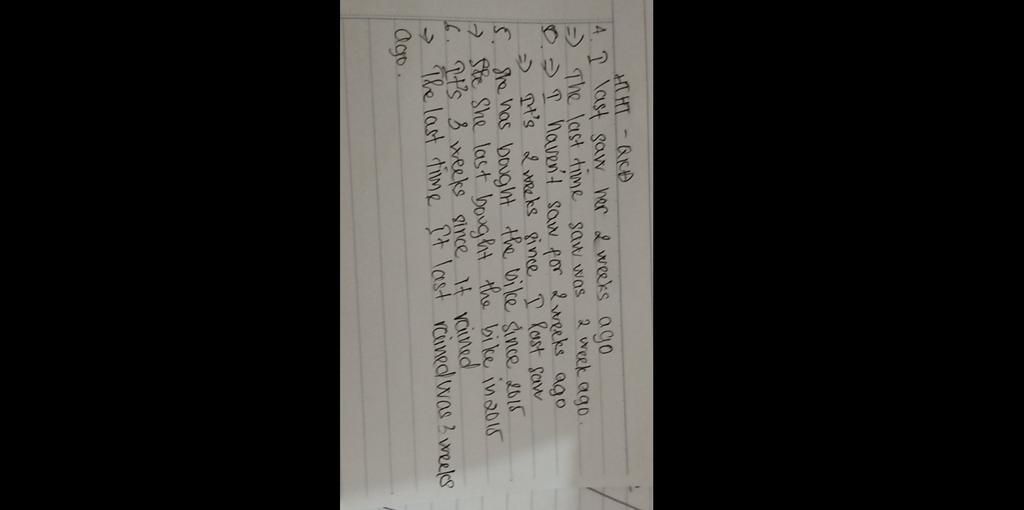 HTHT - QKĐ
4. I last saw her 2 weeks ago
=> The last time saw was 2 week ago.
=> I haven't saw for 2 weeks ago
=> It's 2 weeks since I last saw
5. She has bought the bike since 2015
-> She last bought the bike in 2015
6. It's 3 weeks since it rained
=> The last time It last rained was 3 weeks
ago.